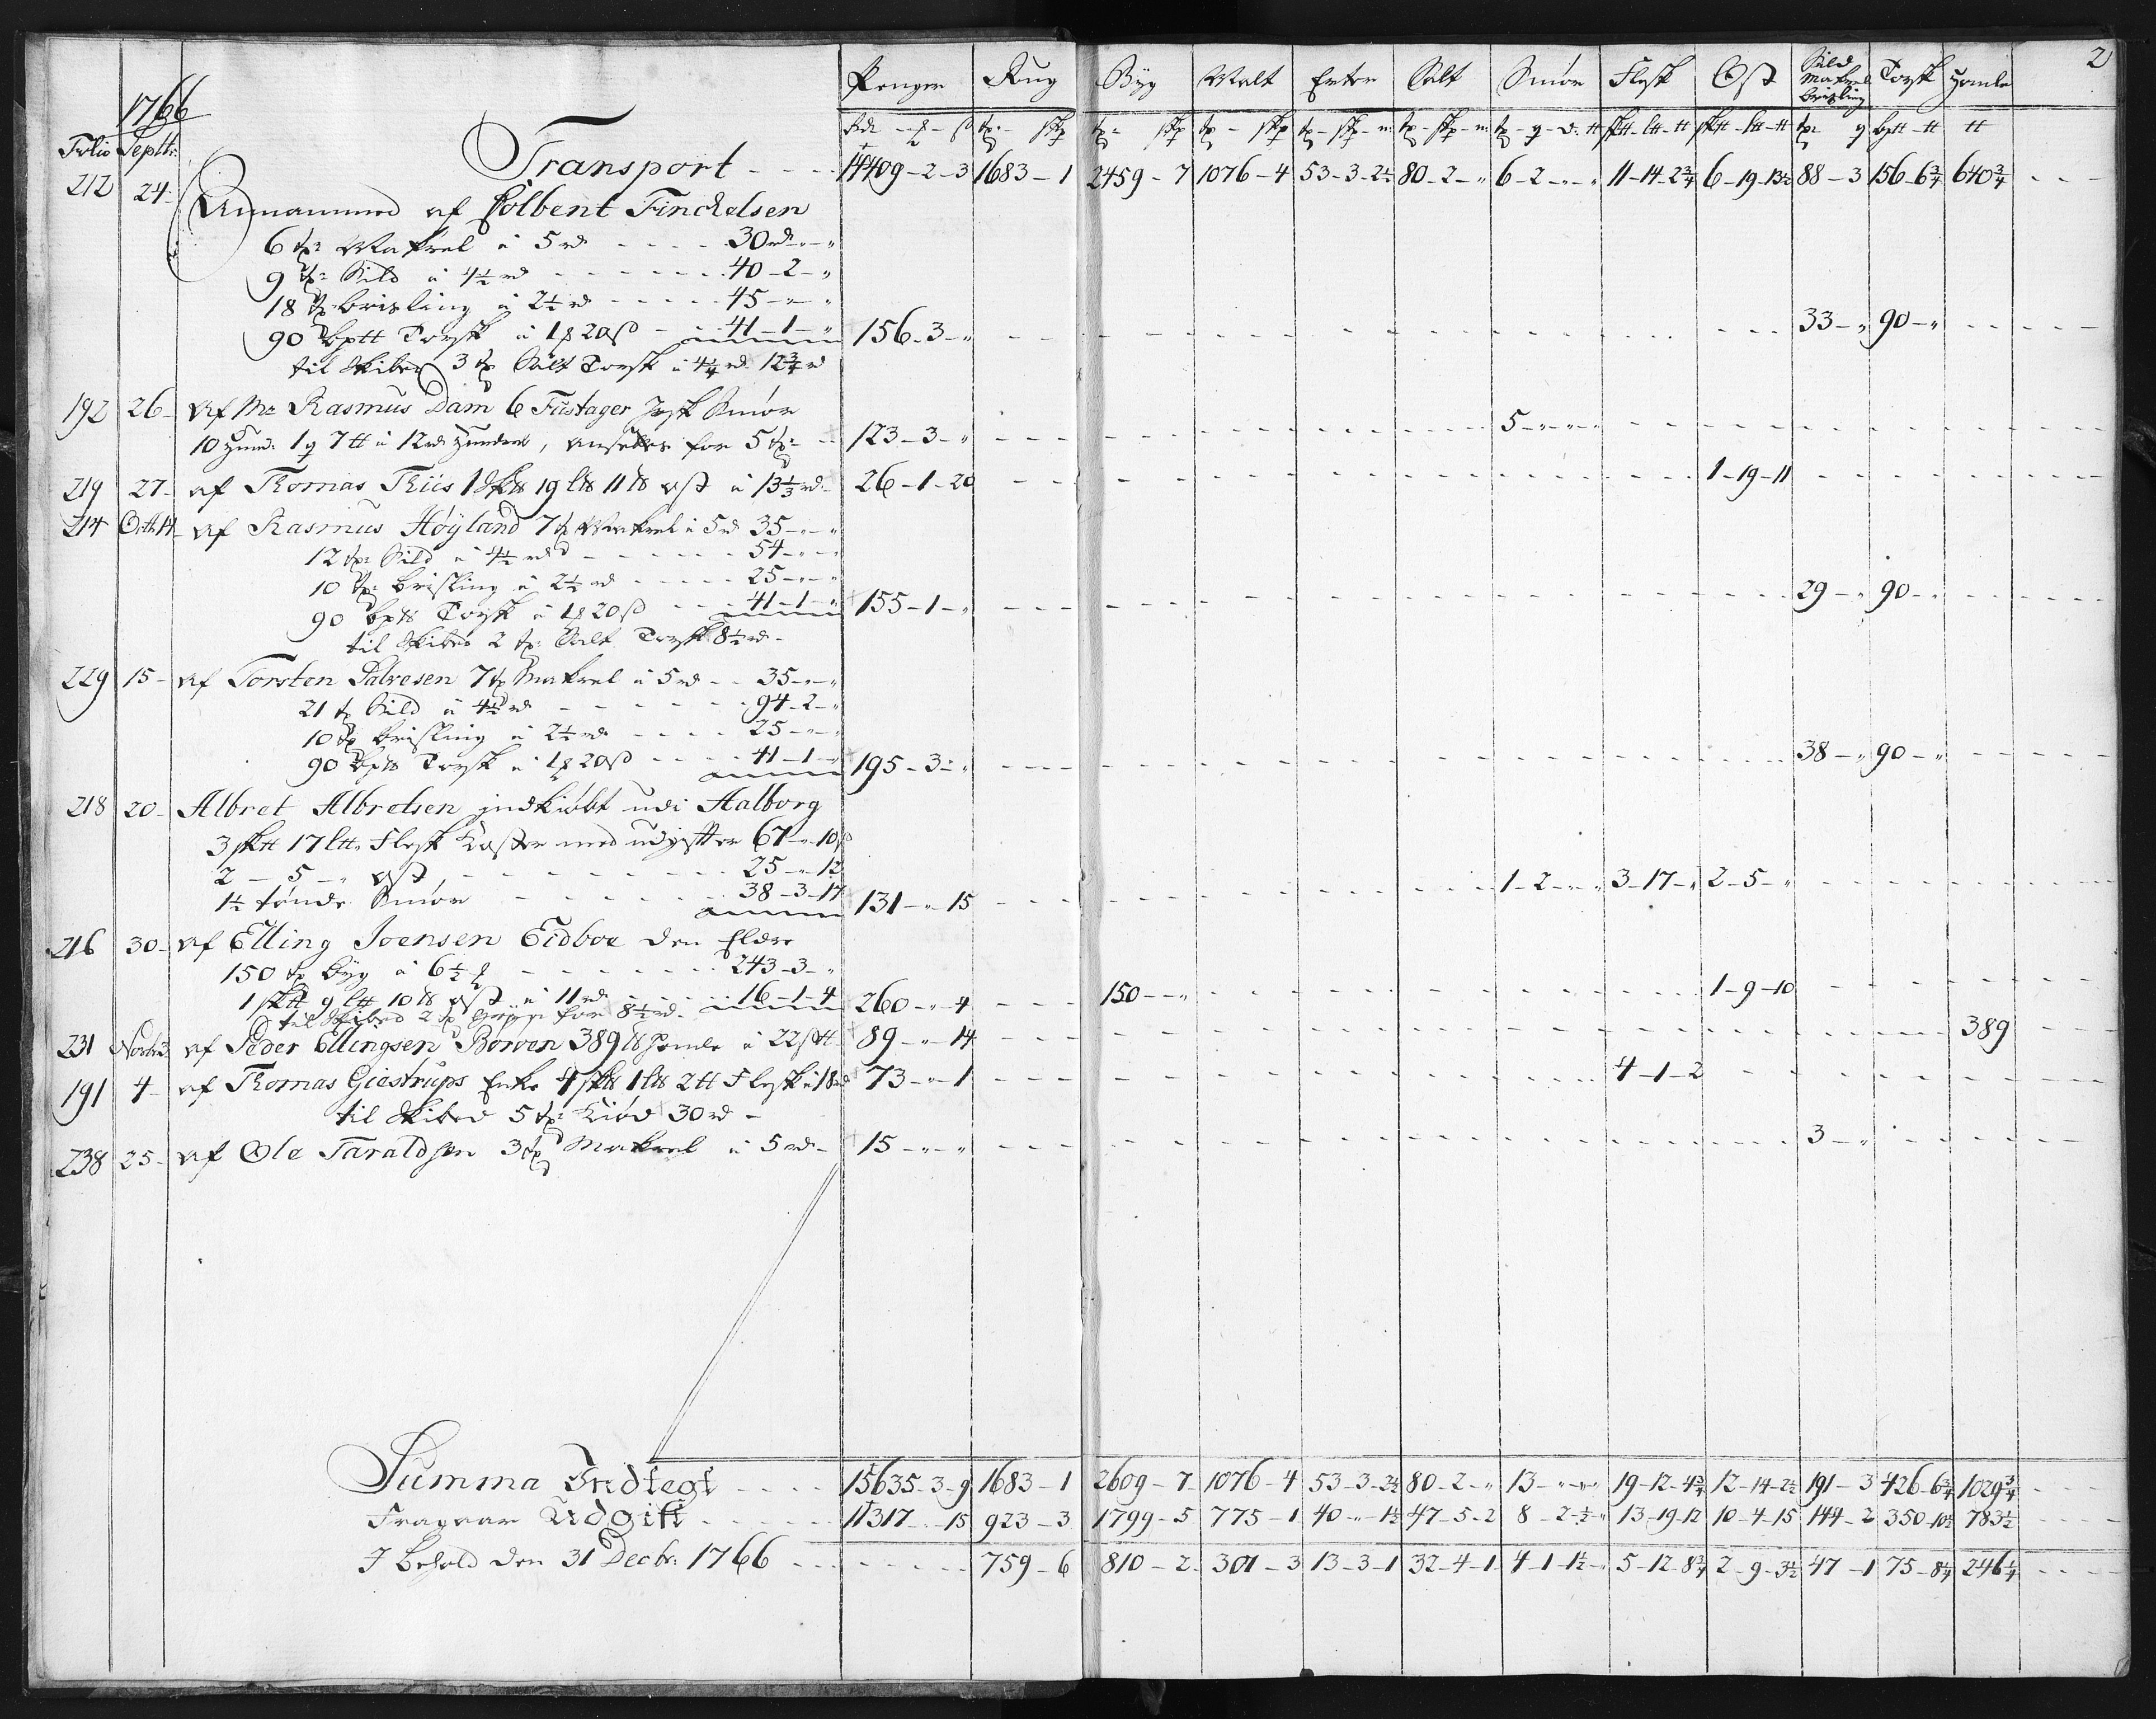 Penger Rug Byg Malt Erter Salt Smør Flesk Ost Sild Makrel Brisling Torsk Homle 2
1766
Folio Septbr:
Transport - - - 14409-2-3 1683-1 2459-7 1076-4 53-3-2½ 80-2-" 6-2-"-" 11-14-2¾ 6-19-13½ 88-3 156-6¾ 640¾
212 24- Annammed af Colbent Finckelsen
6 tr: Makrel á 5 rd - - - - 30rd-"-"
9 tr: Sild á 4½ rd - - - - 40-2-"
18 tr Brisling á 2½ rd - - - - 45-"-"
90 bptt Torsk á 1 20ß - - 41-1-" 156-3-" 33-" 90-"
til Skibet 3 tr Salt Torsk á 4¼ rd 12¾ rd
192 26- Af Mr Rasmus Dam 6 Fustager Jysk Smør
10 Hund: 1 g 7 tt á 12 rd Hundret, ansettes for 5 tr: - 123-3-" 5-"-"-"
219 27- af Thomas Thiis 1 Sktt 19 ltt 11 tt ost á 13⅓ rd- 26-1-20 1-19-11
214 Octb 14- af Rasmus Høyland 7 tr Makrel á 5 rd 35-"-"
12 tr: Sild á 4½ rd - - - - 54-"-"
10 tr: Brisling á 2½ rd - - - - 25-"-"
90 bptt Torsk á 1 20ß - - 41-1-" 155-1-" 29-" 90-"
til Skibet 2 tr: Salt Torsk 8½ rd-
229 15- af Torsten Salvesen 7 tr Makrel á 5 rd - - 35-"-"
21 tr Sild á 4½ rd - - - - 94-2-"
10 tr Brisling á 2½ rd - - - - 25-"-"
90 bptt Torsk á 1 20ß - - - 41-1-" 195-3-" 38-" 90-"
218 20- Albret Albretsen indkiøbt udi Aalborg
3 sktt 17 ltt Flesk Koster med udgifter 67-"-10ß
2-5-" ost - - - - 25-"-12
1½ tønde Smør - - - - 38-3-17 131-"-15 1-2-"-" 3-17-" 2-5-"
216 30- af Elling Joensen Eidboe den Eldre
150 tr Byg á 6½ - - - - 243-3-"
1 sktt 9 ltt 10 tt ost á 11 rd - - - 16-1-4 260-"-4 150-" 1-9-10
til Skibed 2 tr Gryn for 8½ rd-
231 Novbr 3 af Peder Ellingsen Borven 389 tt Homle á 22ß tt 89-"-14 389
191 4- af Thomas Giestrups Enke 4 sktt 1 ltt 2 tt Flesk á 18 rd 73-"-1 4-1-2
til Skibed 5 tr: Kiød 30 rd-
238 25- af Ole Taraldsen 3 tr Makrel á 5 rd- 15-"-" 3-"
Summa Indtegt - - - - 15635-3-9 1683-1 2609-7 1076-4 53-3-2½ 80-2-" 13-"-"-" 19-12-4¾ 12-14-2½ 191-3 426-6¾ 1029¾
Fragaar Udgift - - - - 11317-"-15 923-3 1799-5 775-1 40-"-1½ 47-5-2 8-2-½-" 13-19-12 10-4-15 144-2 350-10½ 783½
I Behold den 31 Decbr: 1766 - - - 759-6 810-2 301-3 13-3-1 32-4-1 4-1-1½-" 5-12-8¾ 2-9-3½ 47-1 75-8¼ 246¼